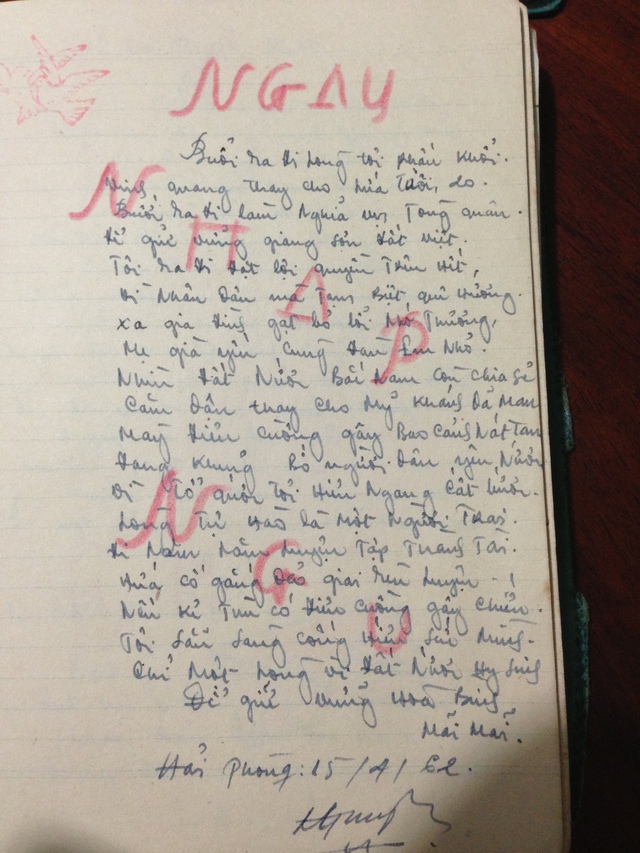 NGAY
NHAP
NGU
Buổi ra đi lòng tôi phấn khởi.
Vinh quang thay cho lứa tuổi
Buổi ra đi làm nghĩa vụ Tòng quân.
Để giữ vững giang sơn đất việt.
Tôi ra đi đặt lợi quyền trên hết,
Vì nhân dân mà tạm biệt quê hương.
Xa gia đình gạt bỏ lời nhớ thương,
Mẹ già yếu cùng đàn Em nhỏ.
Nhìn đất nước Bắc Nam còn chia sẻ
Căm dân thay cho Mỹ khoáng dả man
Máy điên cuồng gây Bao cảnh nát tan
Đang khủng bố người dân yêu nước
Vì tổ quốc tôi hiên ngang cất bước.
Lòng tự hào là một người trai.
Đi luyện tập thành tài.
Hứa cố gắng rèn luyện - !
Nếu kẻ thù có điên cuồng gây chiến.
Tôi sẵn sàng cống hiến sức mình.
Chỉ một lòng vì đất nước hy sinh
Để giữ vững hoà bình
Mãi Mãi.
Hải phòng: 15/4/62.